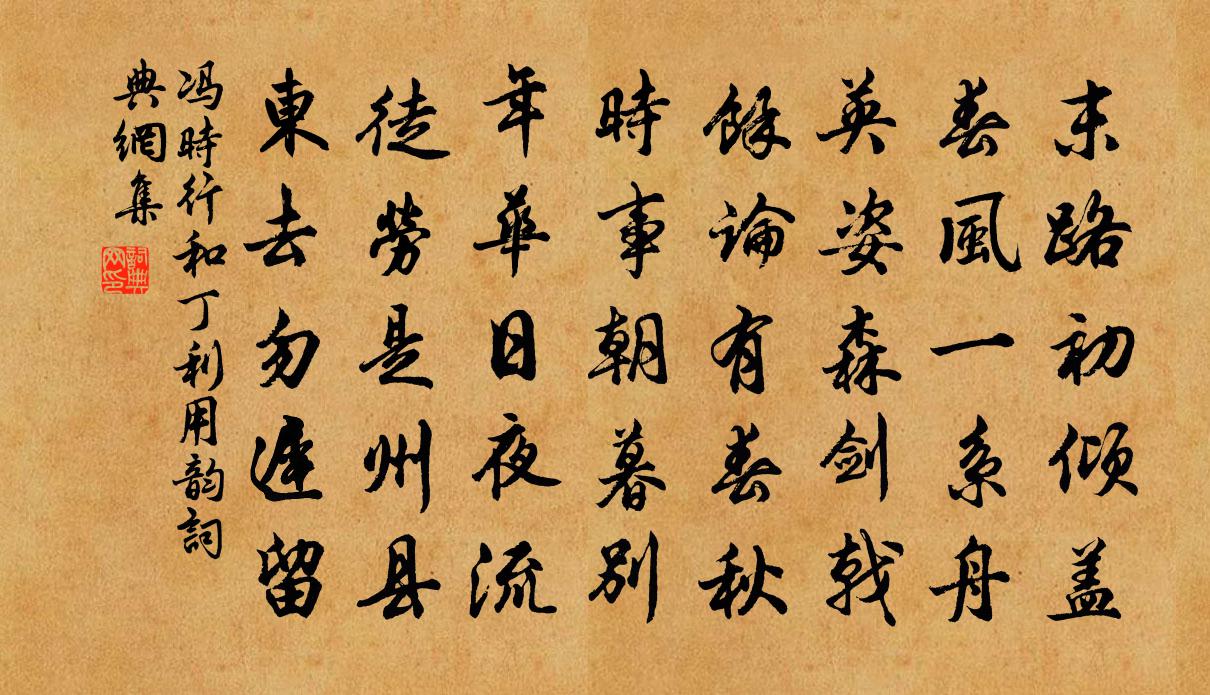 末路初倾盖
春風一系舟
英姿森剑戟
餘論有春秋
時事朝暮别
年華日夜流
徒勞是州县
東去勿遲留
冯時行和丁利用韵詞
典網集
詞典
网印